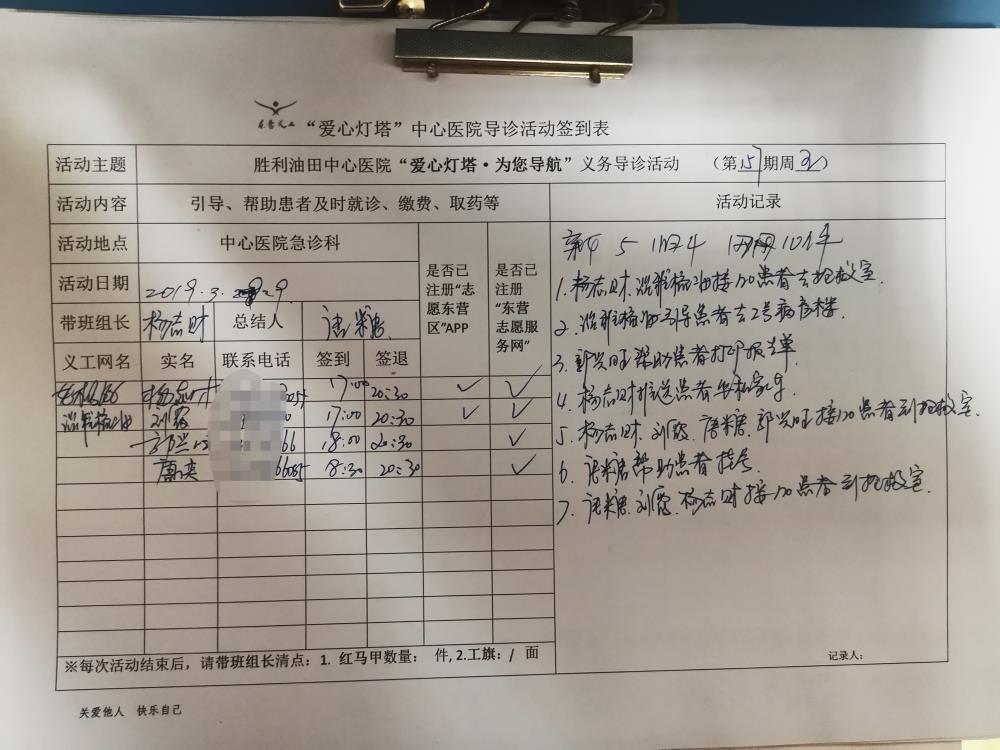 东营义工
“爱心灯塔”中心医院导诊活动签到表
活动主题 胜利油田中心医院“爱心灯塔·为您导航”义务导诊活动 （第157期周五）
活动内容 引导、帮助患者及时就诊、缴费、取药等 活动记录
活动地点 中心医院急诊科 是否已注册“志愿东营区”APP 是否已注册“东营志愿服务网”
活动日期 2019.3.29.
带班组长 杨志财 总结人 唐糖
义工网名 实名 联系电话 签到 签退
17:00 20:30 ✓ ✓
刘霞 17:00 20:30 ✓ ✓
郭兴旺 66 18:00 20:30 ✓
18:30 20:30 ✓
1. 杨志财. 接120患者去抢救室.
2. 引导患者去2号病房楼.
3. 郭兴旺帮助患者打印报告单
4. 杨志财推送患者坐私家车
5. 杨志财. 刘霞. 唐糖. 郭兴旺接120患者到抢救室.
6. 唐糖帮助患者挂号
7. 唐糖. 刘霞. 杨志财接120患者到抢救室.
※每次活动结束后，请带班组长清点：1. 红马甲数量： 件, 2.工旗：/ 面
记录人：
关爱他人 快乐自己